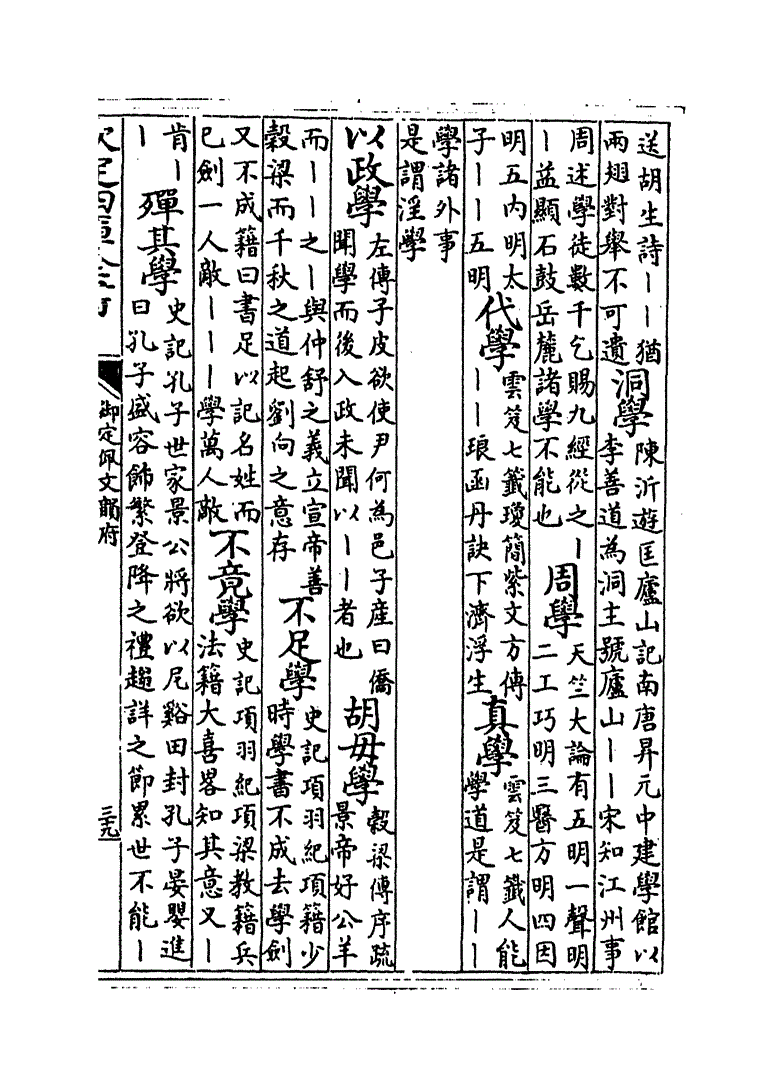 送胡生詩｜｜猶
兩翅對舉不可遺
洞學
陳沂遊匡廬山記南唐昇元中建學館以
李善道為洞主號廬山｜｜宋知江州事
周述學徒數千乞賜九經從之｜
｜益顯石鼓岳麓諸學不能也
周學
天竺大論有五明一聲明
二工巧明三醫方明四因
明五內明太
子｜｜五明
代學
雲笈七籤瓊簡紫文方傳
｜｜琅函丹訣下濟浮生
真學
雲笈七籤人能
學道是謂｜｜
學諸外事
是謂淫學
以政學
左傳子皮欲使尹何為邑子產曰僑
聞學而後入政未聞以｜｜者也
胡毋學
穀梁傳序疏
景帝好公羊
而｜｜之｜與仲舒之義立宣帝善
穀梁而千秋之道起劉向之意存
不足學
史記項羽紀項籍少
時學書不成去學劍
又不成籍曰書足以記名姓而
已劍一人敵｜｜｜學萬人敵
不竟學
史記項羽紀項梁教籍兵
法籍大喜畧知其意又｜
肯｜
｜
殫其學
史記孔子世家景公將欲以尼谿田封孔子晏嬰進
曰孔子盛容飾繁登降之禮趨詳之節累世不能｜
欽定四庫全書
御定佩文韻府
三九